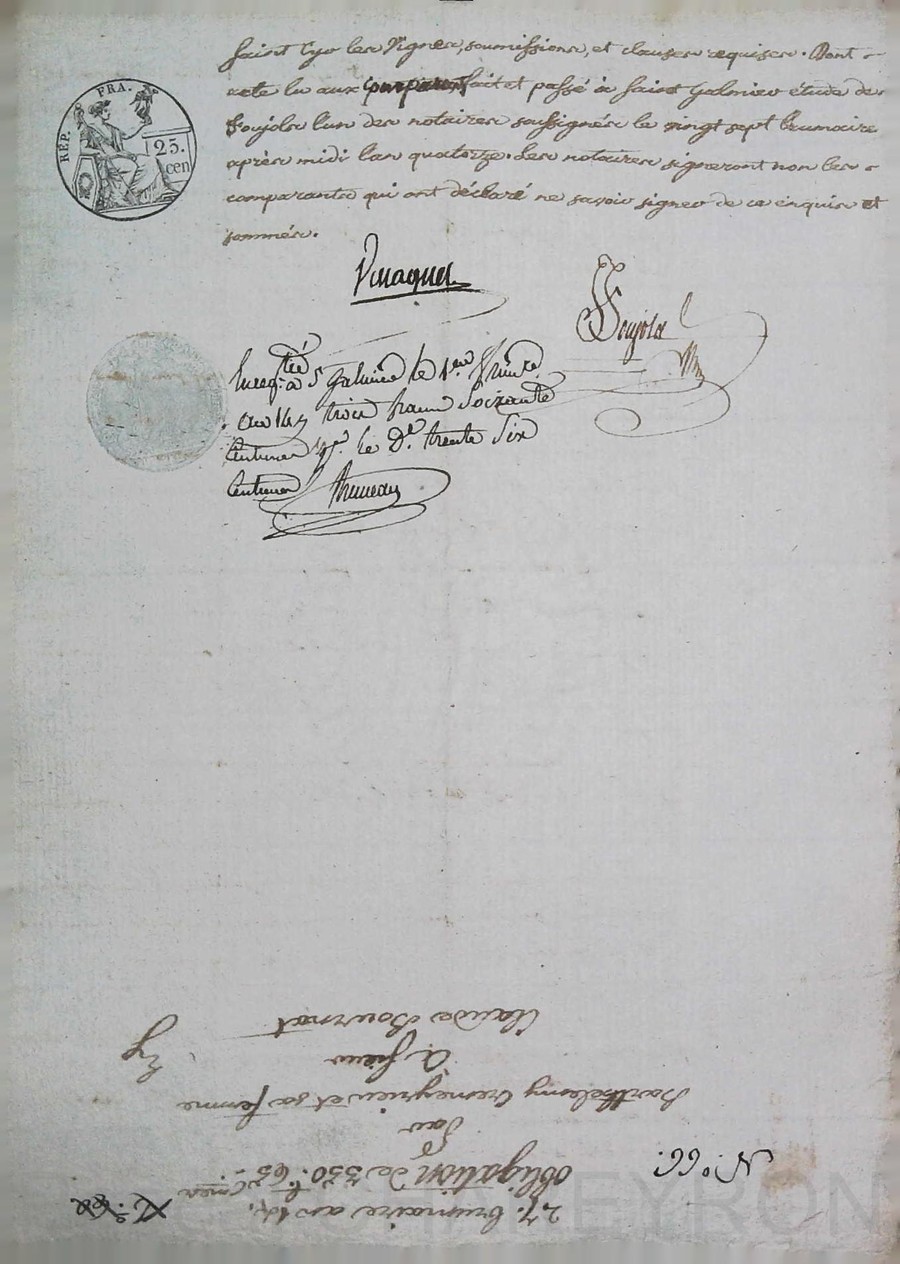 RÉP. FRA.
25.
cen
saint Cyr les Vignes, soumissions, et clauses requises. Dont
acte lu aux fait et passé à saint Galmier étude de
Soujols l'un des notaires soussignés le vingt sept brumaire
après midi l'an quatorze. Les notaires signeront non les
comparants qui ont déclaré ne savoir signer de ce enquis et
sommés.
Soujols
à St Galmier le 1er frim.re
an 14, trois francs soixante
centimes le D.e trente six
centimes
27. brumaire an 14.
obligation de 330. l. 63. C.mes
Par
Barthelemy et sa femme
A sieur
Claude Bournat
N.o 66.